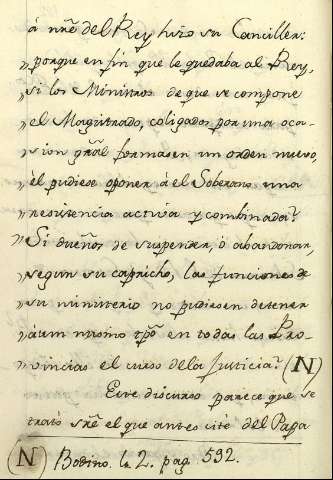 á nrẽ del Rey hizo su Canciller:
„ porque en fin que le quedaba al Rey,
„ si los Ministros de que se compone
„ el Magistrado, coligados por una oca-
„ sion grãl formasen un orden nuevo,
„ èl pudiese oponer á el Soberano una
„ resistencia activa y combinada?
„ Si dueños de suspender, ò abandonar,
„ segun su capricho, las funciones de
„ su ministerio no pudiesen detener
„ áum mismo tpõ en todas las Pro-
„ vincias el curso dela Justicia? (N)
Este discurso parece que se
trató sr̃e el que antes cité del Papa
(N) Bodino. l. 2. pag. 592.